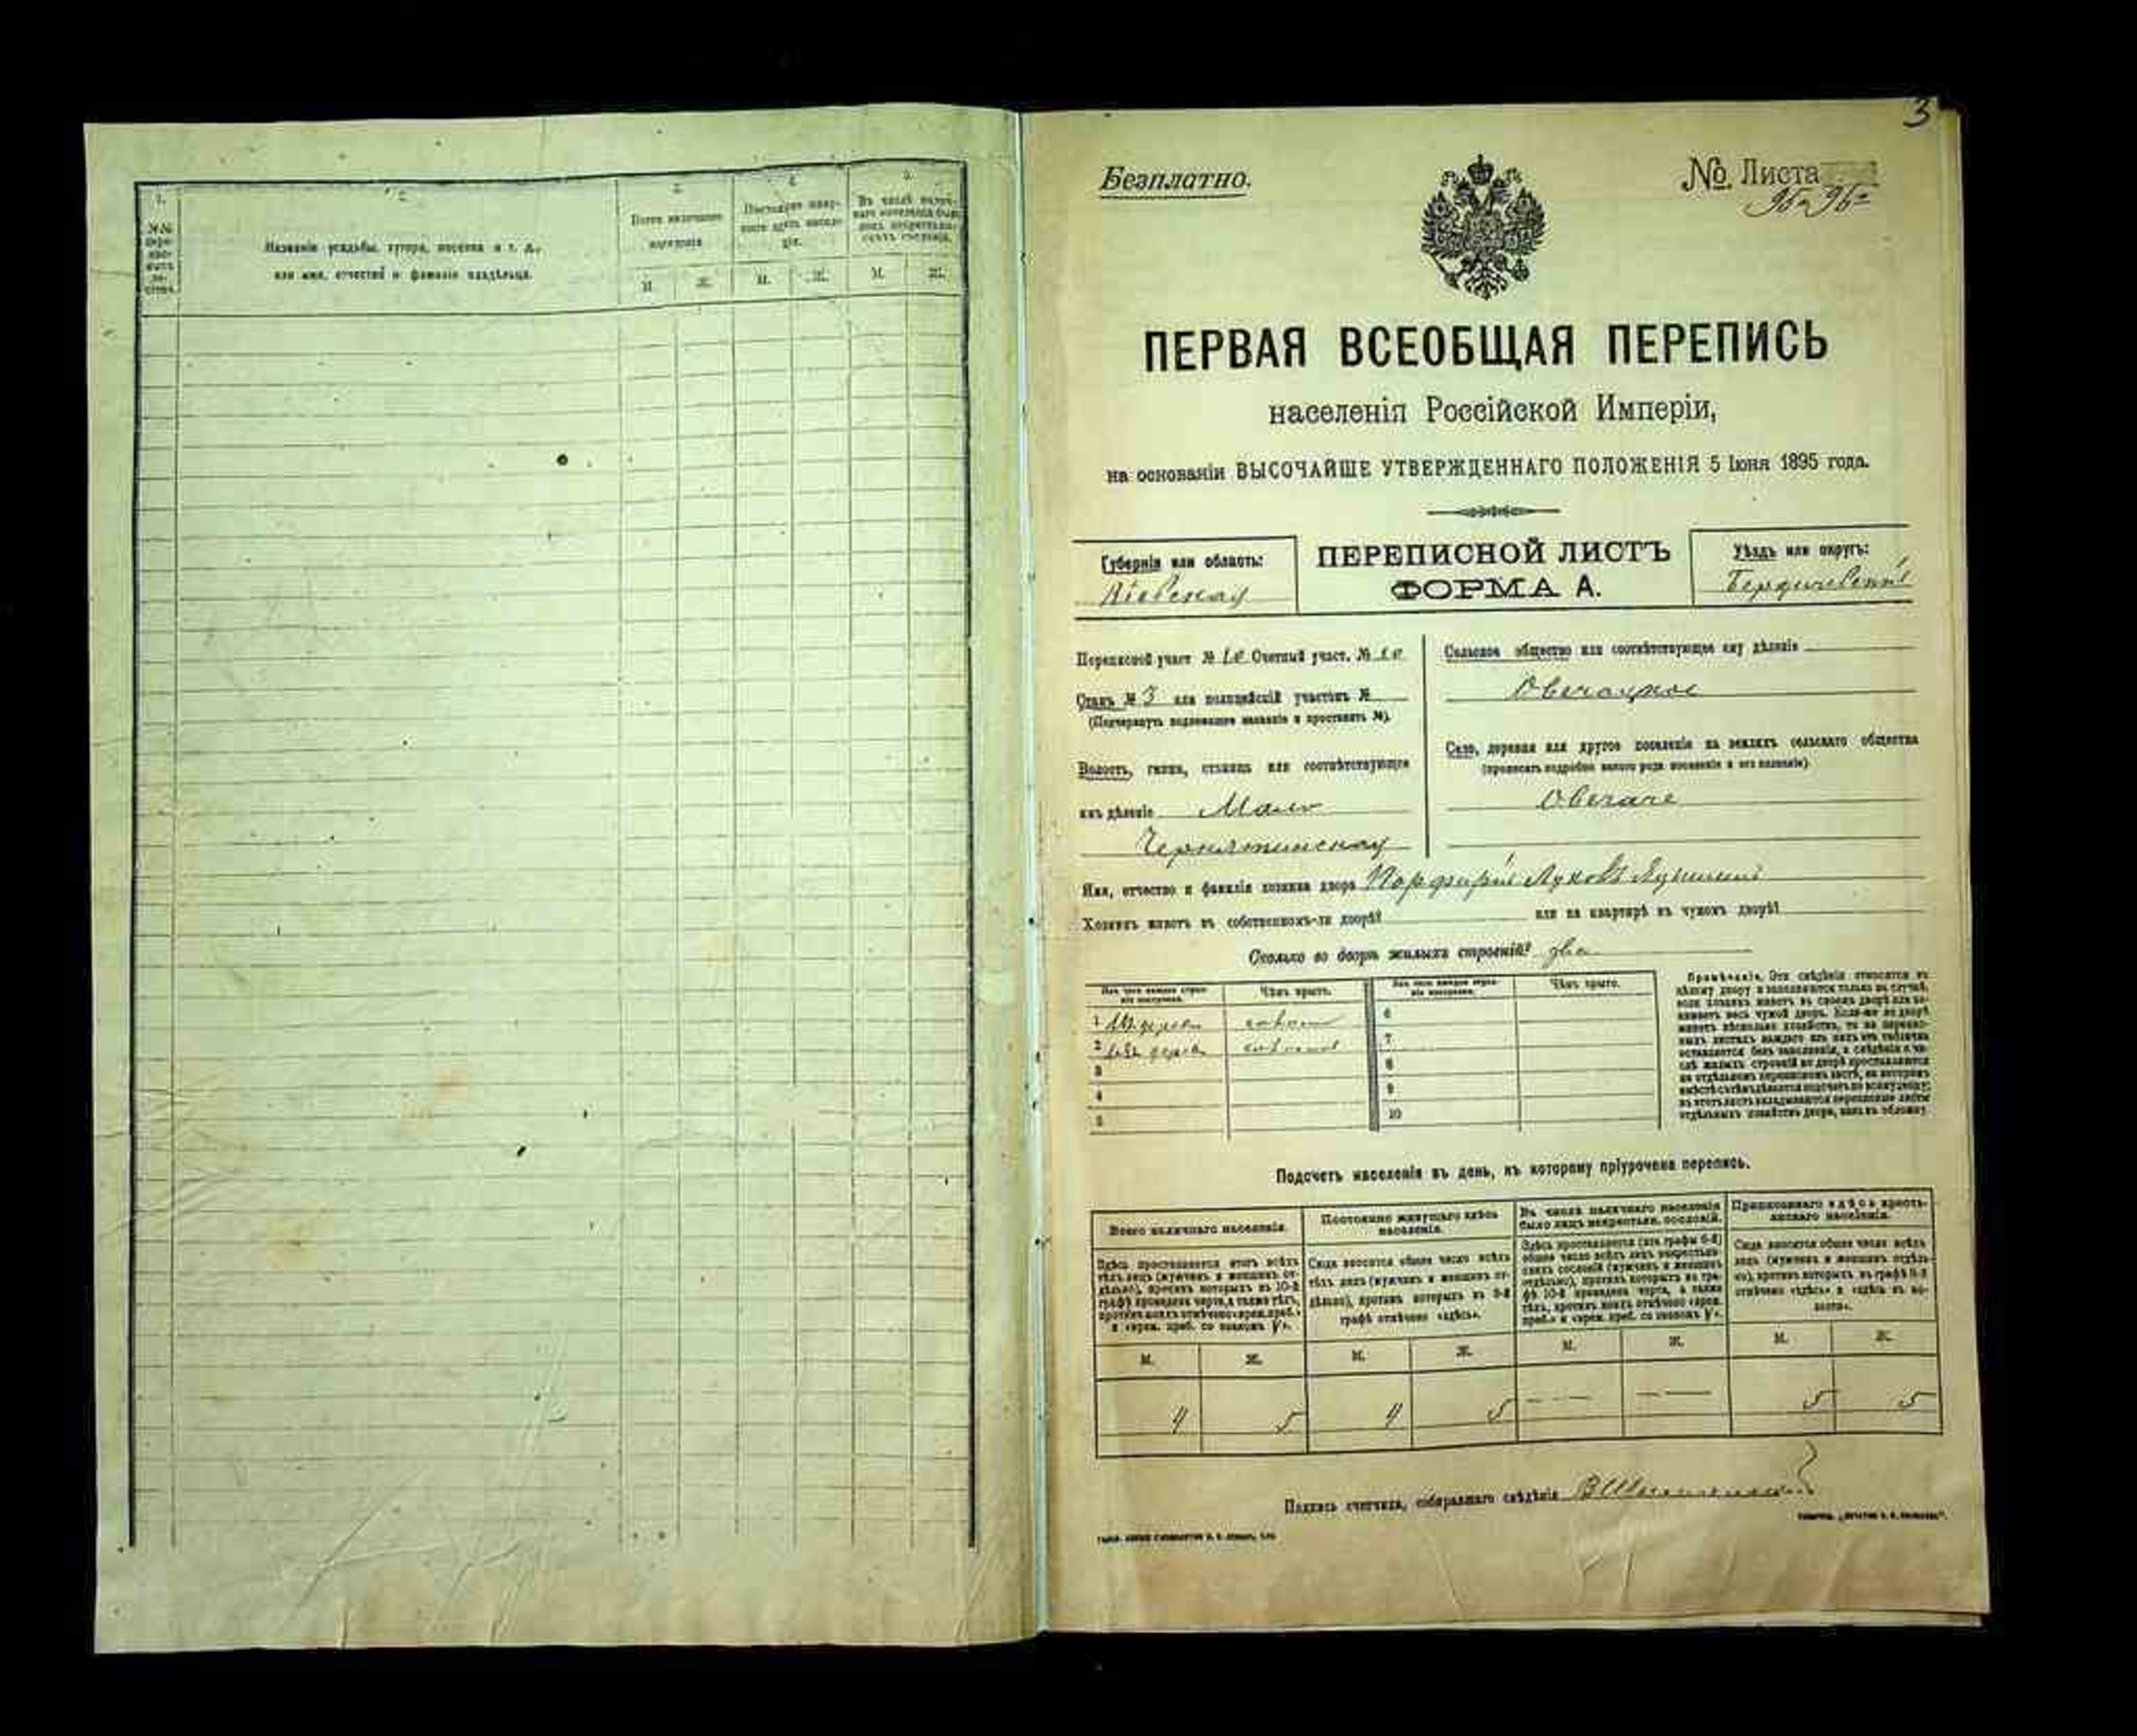 1.
2.
3.
4.
5.
Названіе усадьбы, хутора, поселка и т. д.,
или имя, отчество и фамилія владѣльца.
Всего наличнаго
населенія
М. Ж. М. Ж. М. Ж.
3
Безплатно.
№ Листа
ПЕРВАЯ ВСЕОБЩАЯ ПЕРЕПИСЬ
населенія Россійской Имперіи,
на основаніи ВЫСОЧАЙШЕ УТВЕРЖДЕННАГО ПОЛОЖЕНІЯ 5 Іюня 1895 года.
Губернія или область:
Кіевская
ПЕРЕПИСНОЙ ЛИСТЪ
ФОРМА А.
Уѣздъ или округъ:
Бердичевскій
Переписной участ. № 10 Счетный участ. № 10
Станъ № 3 или полицейскій участокъ №
(Подчеркнуть подлежащее названіе и проставить №).
Волость, гмина, станица или соотвѣтствующее
имъ дѣленіе Мало
Чернятинская
Сельское общество или соотвѣтствующее ему дѣленіе
Овечацкое
Село, деревня или другое поселеніе на земляхъ сельскаго общества
(прописать подробно какого рода поселеніе и его названіе)
Овечаче
Имя, отчество и фамилія хозяина двора Порфирій Луковъ
Хозяинъ живетъ въ собственномъ-ли дворѣ? или на квартирѣ въ чужомъ дворѣ?
Сколько во дворѣ жилыхъ строеній? два
Изъ чего каждое строе-
ніе построено. Чѣмъ крыто. Изъ чего каждое строе-
ніе построено. Чѣмъ крыто.
1 дерева соломою 6
2 дерева соломою 7
3 8
4 9
5 10
Примѣчаніе. Эти свѣдѣнія относятся къ
цѣлому двору и заполняются только въ случаѣ,
если хозяинъ живетъ въ своемъ дворѣ или за-
нимаетъ весь чужой дворъ. Если-же во дворѣ
живетъ нѣсколько хозяйствъ, то на перепис-
ныхъ листахъ каждаго изъ нихъ эта табличка
оставляется безъ заполненія, а свѣдѣнія о чи-
слѣ жилыхъ строеній во дворѣ проставляются
на отдѣльномъ переписномъ листѣ, на которомъ
вмѣстѣ съ тѣмъ дѣлается подсчетъ по всему двору;
въ этотъ листъ вкладываются переписные листы
отдѣльныхъ хозяйствъ двора, какъ въ обложку.
Подсчетъ населенія въ день, къ которому пріурочена перепись.
Всего наличнаго населенія.
Здѣсь проставляется итогъ всѣхъ
тѣхъ лицъ (мужчинъ и женщинъ от-
дѣльно), противъ которыхъ въ 10-й
графѣ проведена черта, а также тѣхъ,
противъ коихъ отмѣчено «врем. преб.»
и «врем. преб. со знакомъ V».
Постоянно живущаго здѣсь
населенія.
Сюда вносится общее число всѣхъ
тѣхъ лицъ (мужчинъ и женщинъ от-
дѣльно), противъ которыхъ въ 9-й
графѣ отмѣчено «здѣсь».
Въ числѣ наличнаго населенія
было лицъ некрестьян. сословій.
Здѣсь проставляется (изъ графы 6-й)
общее число всѣхъ лицъ некрестьян-
скихъ сословій (мужчинъ и женщинъ
отдѣльно), противъ которыхъ въ гра-
фѣ 10-й проведена черта, а также
тѣхъ, противъ коихъ отмѣчено «врем.
преб.» и «врем. преб. со знакомъ V».
Приписаннаго здѣсь кресть-
янскаго населенія.
Сюда вносится общее число всѣхъ
лицъ (мужчинъ и женщинъ отдѣль-
но), противъ которыхъ въ графѣ 8-й
отмѣчено «здѣсь» и «здѣсь въ во-
лости».
М. Ж. М. Ж. М. Ж. М. Ж.
4 5 4 5 — — 5 5
Подпись счетчика, собиравшаго свѣдѣнія